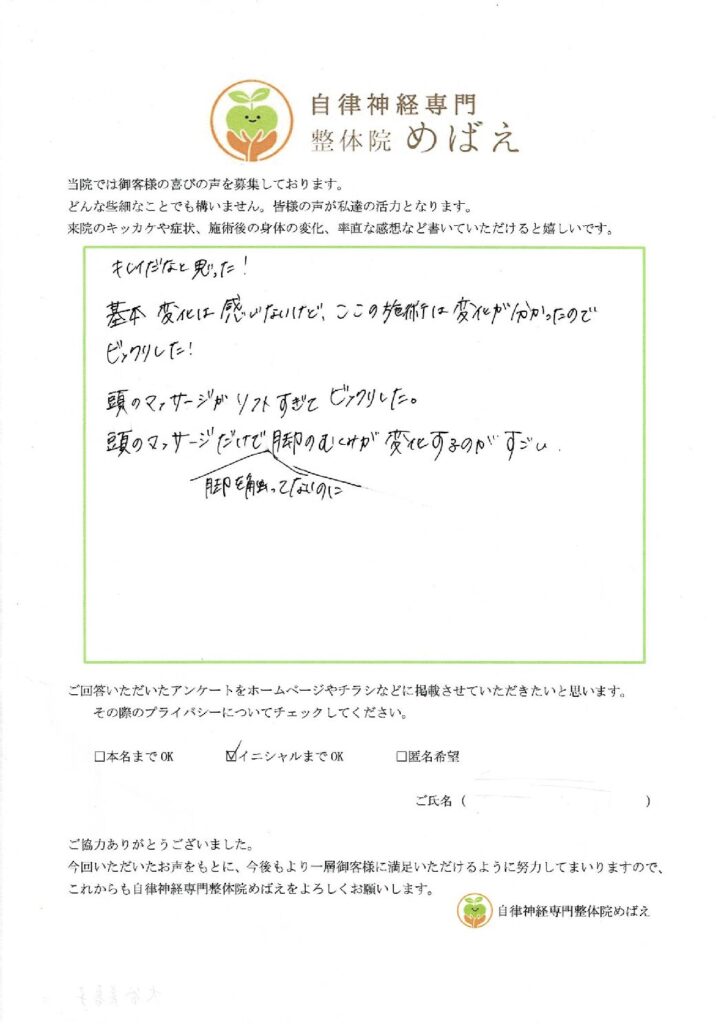 自律神経専門
整体院 めばえ
当院では御客様の喜びの声を募集しております。
どんな些細なことでも構いません。皆様の声が私達の活力となります。
来院のキッカケや症状、施術後の身体の変化、率直な感想など書いていただけると嬉しいです。
キレイだなと思った!
基本 変化は感じないけど、ここの施術は変化が分かったので
ビックリした!
頭のマッサージがソフトすぎてビックリした。
頭のマッサージだけで脚のむくみが変化するのがすごい.
脚を触ってないのに
ご回答いただいたアンケートをホームページやチラシなどに掲載させていただきたいと思います。
その際のプライバシーについてチェックしてください。
☐本名までOK ☑イニシャルまでOK ☐匿名希望
ご氏名 ( )
ご協力ありがとうございました。
今回いただいたお声をもとに、今後もより一層御客様に満足いただけるように努力してまいりますので、
これからも自律神経専門整体院めばえをよろしくお願いします。
自律神経専門整体院めばえ